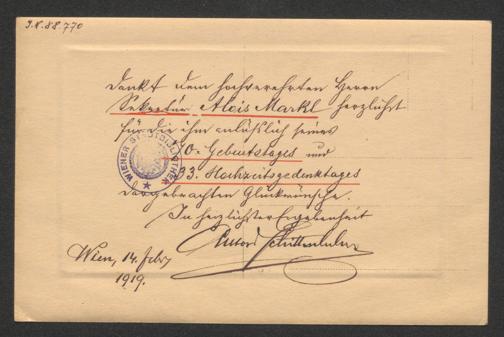 J.N. 88.770
dankt dem hochverehrten Herrn
Sekretär Alois Markl herzlichst
für die ihm anläßlich seines
70. Geburtstages und
33. Hochzeitsgedenktages
dargebrachten Glückwünsche.
In herzlichster Ergebenheit
Anton
Wien, 14. Febr
1919.
WIENER STADTBIBLIOTHEK